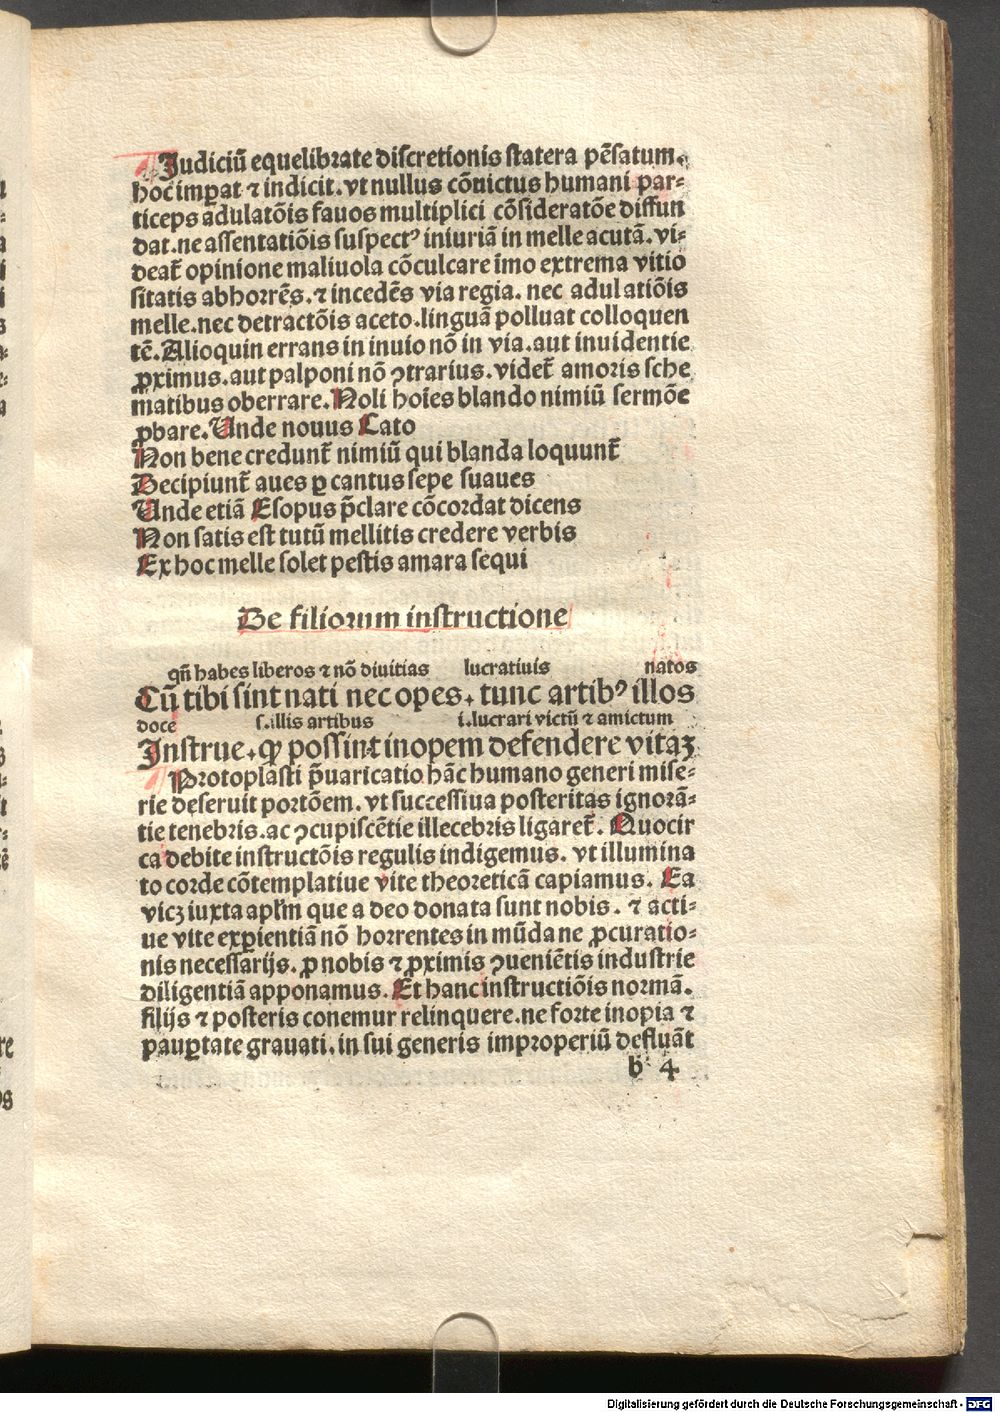 Judiciū equelibrate discretionis statera pēsatum.
hoc imꝑat ⁊ indicit. vt nullus cōuictus humani par⸗
ticeps adulatōis fauos multiplici cōsideratōe diffun
dat. ne assentatiōis suspectꝰ iniuriā in melle acutā. vi⸗
deat̄ opinione maliuola cōculcare īmo extrema vitio
sitatis abhorrēs. ⁊ incedēs via regia. nec adulatiōis
melle. nec detractōis aceto. linguā polluat colloquen
tē. Alioquin errans in inuio nō in via. aut inuidentie
ꝓximus. aut palponi nō ꝯtrarius. videt̄ amoris sche
matibus oberrare. Noli hoīes blando nimiū sermōe
ꝓbare. Unde nouus Cato
Non bene credunt̄ nimiū qui blanda loquunt̄
Decipiunt̄ aues ꝑ cantus sepe suaues
Unde etiā Esopus p̄clare cōcordat dicens
Non satis est tutū mellitis credere verbis
Ex hoc melle solet pestis amara sequi
De filiorum instructione
qn̄ habes liberos ⁊ nō diuitias lucratiuis natos
Cū tibi sint nati nec opes. tunc artibꝰ illos
doce s. illis artibus i. lucrari victū ⁊ amictum
Instrue. qͦ possint inopem defendere vitaꝫ
Protoplasti p̄uaricatio hāc humano generi mise⸗
rie deseruit portōem. vt successiua posteritas ignorā⸗
tie tenebris. ac ꝯcupiscētie illecebris ligaret̄. Quocir
ca debite instructōis regulis indigemus. vt illumina
to corde cōtemplatiue vite theoreticā capiamus. Ea
vicꝫ iuxta apl̄m que a deo donata sunt nobis. ⁊ acti⸗
ue vite exꝑientiā nō horrentes in mūda ne ꝓcuratio⸗
nis necessarijs. ꝓ nobis ⁊ ꝓximis ꝯueniētis industrie
diligentiā apponamus. Et hanc instructiōis normā.
filijs ⁊ posteris conemur relinquere. ne forte inopia ⁊
pauꝑtate grauati. in sui generis improperiū defluāt
b 4
Digitalisierung gefördert durch die Deutsche Forschungsgemeinschaft - DFG